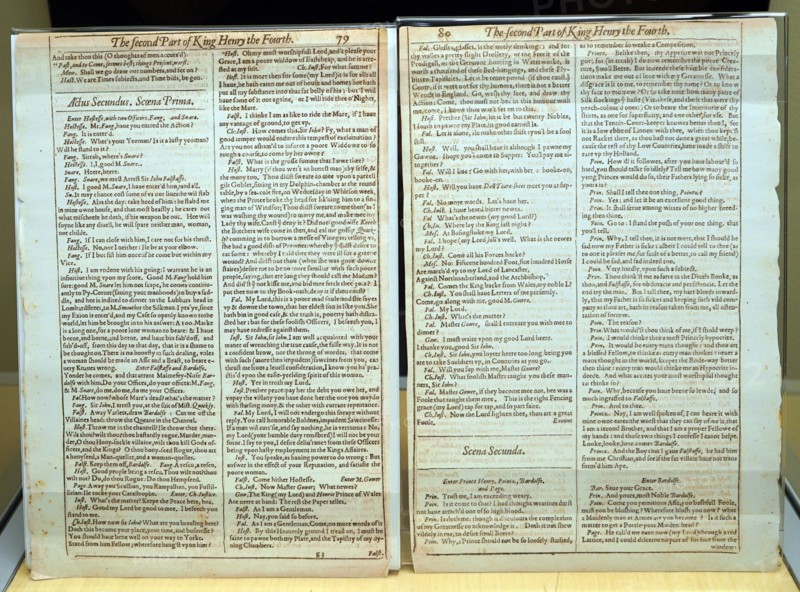 The second Part of King Henry the Fourth. 79
And take thou this (O thoughts of men accurs'd)
Past, and to Come, seemes best; things Present, worst.
Mow. Shall we go draw our numbers, and set on?
Hast. We are Times subiects, and Time bids, be gon.
Actus Secundus. Scœna Prima.
Enter Hostesse, with two Officers, Fang, and Snare.
Hostesse. Mr. Fang, haue you entred the Action?
Fang. It is enter'd.
Hostesse. Wher's your Yeoman? Is it a lusty yeoman?
Will he stand to it?
Fang. Sirrah, where's Snare?
Hostesse. I, I, good M. Snare.
Snare. Heere, heere.
Fang. Snare, we must Arrest Sir Iohn Falstaffe.
Host. I good M. Snare, I haue enter'd him, and all.
Sn. It may chance cost some of vs our liues: he wil stab
Hostesse. Alas the day: take heed of him: he stabd me
in mine owne house, and that most beastly: he cares not
what mischeefe he doth, if his weapon be out. Hee will
foyne like any diuell, he will spare neither man, woman,
nor childe.
Fang. If I can close with him, I care not for his thrust.
Hostesse. No, nor I neither: Ile be at your elbow.
Fang. If I but fist him once: if he come but within my
Vice.
Host. I am vndone with his going: I warrant he is an
infinitiue thing vpon my score. Good M. Fang hold him
sure: good M. Snare let him not scape, he comes continu-
antly to Py-Corner (sauing your manhoods) to buy a sad-
dle, and hee is indited to dinner to the Lubbars head in
Lombardstreet, to M. Smoothes the Silkman. I pra'ye, since
my Exion is enter'd, and my Case so openly knowne to the
world, let him be brought in to his answer: A 100. Marke
is a long one, for a poore lone woman to beare: & I haue
borne, and borne, and borne, and haue bin fub'd off, and
fub'd-off, from this day to that day, that it is a shame to
be thought on. There is no honesty in such dealing, vnles
a woman should be made an Asse and a Beast, to beare e-
uery Knaues wrong. Enter Falstaffe and Bardolfe.
Yonder he comes, and that arrant Malmesey-Nose Bar-
dolfe with him. Do your Offices, do your offices: M. Fang,
& M. Snare, do me, do me, do me your Offices.
Fal. How now? whose Mare's dead? what's the matter?
Fang. Sir Iohn, I arrest you, at the suit of Mist. Quickly.
Falst. Away Varlets, draw Bardolfe: Cut me off the
Villaines head: throw the Queane in the Channel.
Host. Throw me in the channell? Ile throw thee there.
Wilt thou? wilt thou? thou bastardly rogue. Murder, mur-
der, O thou Hony-suckle villaine, wilt thou kill Gods of-
ficers, and the Kings? O thou hony-seed Rogue, thou art
a honyseed, a Man-queller, and a woman-queller.
Falst. Keep them off, Bardolfe. Fang. A rescu, a rescu.
Host. Good people bring a rescu. Thou wilt not? thou
wilt not? Do, do thou Rogue: Do thou Hempseed.
Page. Away you Scullion, you Rampallian, you Fustil-
lirian: Ile tucke your Catastrophe. Enter. Ch. Iustice.
Iust. What's the matter? Keepe the Peace here, hoa.
Host. Good my Lord be good to mee. I beseech you
stand to me.
Ch. Iust. How now sir Iohn? What are you brauling here?
Doth this become your place, your time, and businesse?
You should haue bene well on your way to Yorke.
Stand from him Fellow; wherefore hang'st vpon him?
Host. Oh my most worshipfull Lord, and't please your
Grace, I am a poore widdow of Eastcheap, and he is arre-
sted at my suit. Ch. Iust. For what summe?
Host. It is more then for some (my Lord) it is for all: all
I haue, he hath eaten me out of house and home; hee hath
put all my substance into that fat belly of his: but I will
haue some of it out againe, or I will ride thee o'Nights,
like the Mare.
Falst. I thinke I am as like to ride the Mare, if I haue
any vantage of ground, to get vp.
Ch. Iust. How comes this, Sir Iohn? Fy, what a man of
good temper would endure this tempest of exclamation?
Are you not asham'd to inforce a poore Widdowe to so
rough a course, to come by her owne?
Falst. What is the grosse summe that I owe thee?
Host. Marry (if thou wer't an honest man) thy selfe, &
the mony too. Thou didst sweare to mee vpon a parcell
gilt Goblet, sitting in my Dolphin-chamber at the round
table, by a sea-cole fire, on Wednesday in Whitson week,
when the Prince broke thy head for lik'ning him to a sing-
ing man of Windsor; Thou didst sweare to me then (as I
was washing thy wound) to marry me, and make mee my
Lady thy wife. Canst thou deny it? Did not goodwife Keech
the Butchers wife come in then, and cal me gossip Quick-
ly? comming in to borrow a messe of Vinegar: telling vs,
she had a good dish of Prawnes: whereby thou didst desire to
eat some: whereby I told thee they were ill for a greene
wound? And didst not thou (when she was gone downe
staires) desire me to be no more familiar with such poore
people, saying, that ere long they should call me Madam?
And did'st thou not kisse me, and bid mee fetch thee 30.s? I
put thee now to thy Book-oath, deny it if thou canst?
Fal. My Lord, this is a poore mad soule: and she sayes
vp & downe the town, that her eldest son is like you. She
hath bin in good case, & the truth is, pouerty hath distra-
cted her: but for these foolish Officers, I beseech you, I
may haue redresse against them.
Iust. Sir Iohn, sir Iohn, I am well acquainted with your
maner of wrenching the true cause, the false way. It is not
a confident brow, nor the throng of wordes, that come
with such (more then impudent) sawcines from you, can
thrust me from a leuell consideration, I know you ha' pra-
ctis'd vpon the easie-yeelding spirit of this woman.
Host. Yes in troth my Lord.
Iust. Prethee peace: pay her the debt you owe her, and
vnpay the villany you haue done her: the one you may do
with sterling mony, & the other with currant repentance.
Fal. My Lord, I will not vndergo this sneape without
reply. You call honorable Boldnes, impudent Sawcinesse:
If a man wil curt'sie, and say nothing, he is vertuous: No,
my Lord (your humble duty remēbred) I will not be your
sutor. I say to you, I desire deliu'rance from these Officers
being vpon hasty employment in the Kings Affaires.
Iust. You speake, as hauing power to do wrong: But
answer in the effect of your Reputation, and satisfie the
poore woman.
Falst. Come hither Hostesse. Enter M. Gower
Ch. Iust. Now Master Gower; What newes?
Gow. The King (my Lord) and Henrie Prince of Wales
Are neere at hand: The rest the Paper telles.
Falst. As I am a Gentleman.
Host. Nay, you said so before.
Fal. As I am a Gentleman. Come, no more words of it
Host. By this Heauenly ground I tread on, I must be
faine to pawne both my Plate, and the Tapistry of my dy-
ning Chambers.
g3 Falst.
80 The second Part of King Henry the Fourth.
Fal. Glasses, glasses, is the onely drinking: and for
thy walles a pretty slight Drollery, or the Storie of the
Prodigall, or the Germane hunting in Waterworke, is
worth a thousand of these Bed-hangings, and these Fly-
bitten Tapistries. Let it be tenne pound (if thou canst.)
Come, if it were not for thy humors, there is not a better
Wench in England. Go, wash thy face, and draw thy
Action: Come, thou must not bee in this humour with
me, come, I know thou was't set on to this.
Host. Prethee (Sir Iohn) let it be but twenty Nobles,
I loath to pawne my Plate, in good earnest la.
Fal. Let it alone, Ile make other shift: you'l be a fool
still.
Host. Well, you shall haue it although I pawne my
Gowne. I hope you'l come to Supper: You'l pay me al-
together?
Fal. Will I liue? Go with her, with her: hooke-on,
hooke-on.
Host. Will you haue Doll Teare-sheet meet you at sup-
per?
Fal. No more words. Let's haue her.
Ch. Iust. I haue heard bitter newes.
Fal. What's the newes (my good Lord?)
Ch. Iu. Where lay the King last night?
Mes. At Basingstoke my Lord.
Fal. I hope (my Lord) all's well. What is the newes
my Lord?
Ch. Iust. Come all his Forces backe?
Mes. No: Fifteene hundred Foot, fiue hundred Horse
Are march'd vp to my Lord of Lancaster,
Against Northumberland, and the Archbishop.
Fal. Comes the King backe from Wales, my noble L?
Ch. Iust. You shall haue Letters of me presently.
Come, go along with me, good M. Gowre.
Fal. My Lord.
Ch. Iust. What's the matter?
Fal. Master Gowre, shall I entreate you with mee to
dinner?
Gow. I must waite vpon my good Lord heere.
I thanke you, good Sir Iohn.
Ch. Iust. Sir Iohn, you loyter heere too long being you
are to take Souldiers vp, in Countries as you go.
Fal. Will you sup with me, Master Gowre?
Ch. Iust. What foolish Master taught you these man-
ners, Sir Iohn?
Fal. Master Gower, if they become mee not, hee was a
Foole that taught them mee. This is the right Fencing
grace (my Lord) tap for tap, and so part faire.
Ch. Iust. Now the Lord lighten thee, thou art a great
Foole. Exeunt
Scena Secunda.
Enter Prince Henry, Pointz, Bardolfe,
and Page.
Prin. Trust me, I am exceeding weary.
Poin. Is it come to that? I had thought wearines durst
not haue attach'd one of so high blood.
Prin. It doth me: though it discolours the complexion
of my Greatnesse to acknowledge it. Doth it not shew
vildely in me, to desire small Beere?
Poin. Why, a Prince should not be so loosely studied,
as to remember so weake a Composition.
Prince. Belike then, my Appetite was not Princely
got: for (in troth) I do now remember the poore Crea-
ture, Small Beere. But indeede these humble considera-
tions make me out of loue with my Greatnesse. What a
disgrace is it to me, to remember thy name? Or to know
thy face to morrow? Or to take note how many paire of
Silk stockings thou hast? (Viz. these, and those that were thy
peach-colour'd ones:) Or to beare the Inuentorie of thy
shirts, as one for superfluity, and one other, for vse. But
that the Tennis-Court-keeper knowes better then I, for
it is a low ebbe of Linnen with thee, when thou kept'st
not Racket there, as thou hast not done a great while, be-
cause the rest of thy Low Countries, haue made a shift to
eate vp thy Holland.
Poin. How ill it followes, after you haue labour'd so
hard, you should talke so idlely? Tell me how many good
yong Princes would do so, their Fathers lying so sicke, as
yours is?
Prin. Shall I tell thee one thing, Pointz?
Poin. Yes: and let it be an excellent good thing.
Prin. It shall serue among wittes of no higher breed-
ing then thine.
Poin. Go to: I stand the push of your one thing, that
you'l tell.
Prin. Why, I tell thee, it is not meet, that I should be
sad now my Father is sicke: albeit I could tell to thee (as
to one it pleases me, for fault of a better, to call my friend)
I could be sad, and sad indeed too.
Poin. Very hardly, vpon such a subiect.
Prin. Thou think'st me as farre in the Diuels Booke, as
thou, and Falstaffe, for obduracie and persistencie. Let the
end try the man. But I tell thee, my hart bleeds inward-
ly, that my Father is so sicke: and keeping such vild com-
pany as thou art, hath in reason taken from me, all osten-
tation of sorrow.
Poin. The reason?
Prin. What would'st thou think of me, if I shold weep?
Poin. I would thinke thee a most Princely hypocrite.
Prin. It would be euery mans thought: and thou art
a blessed Fellow, to thinke as euery man thinkes: neuer a
mans thought in the world, keepes the Rode-way better
then thine: euery man would thinke me an Hypocrite in-
deede. And what accites your most worshipful thought
to thinke so?
Poin. Why, because you haue beene so lewde, and so
much ingraffed to Falstaffe.
Prin. And to thee.
Pointz. Nay, I am well spoken of, I can heare it with
mine owne eares: the worst that they can say of me is, that
I am a second Brother, and that I am a proper Fellowe of
my hands: and those two things I confesse I canot helpe.
Looke, looke, here comes Bardolfe.
Prince. And the Boy that I gaue Falstaffe, he had him
from me Christian, and see if the fat villain haue not trans-
form'd him Ape.
Enter Bardolfe.
Bar. Saue your Grace.
Prin. And yours, most Noble Bardolfe.
Poin. Come you pernitious Asse, you bashfull Foole,
must you be blushing? Wherefore blush you now? what
a Maidenly man at Armes are you become? Is it such a
matter to get a Pottle-pots Maiden-head?
Page. He call'd me euen now (my Lord) through a red
Lattice, and I could discerne no part of his face from the
window: